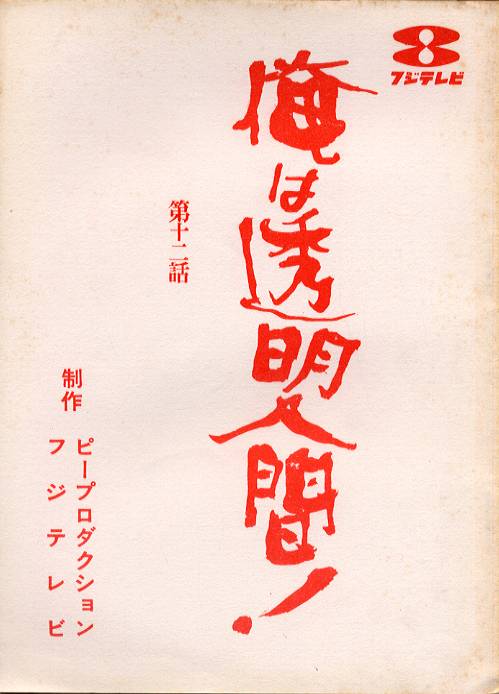 フジテレビ
俺は透明人間！
第十二話
制作
ピープロダクション
フジテレビ